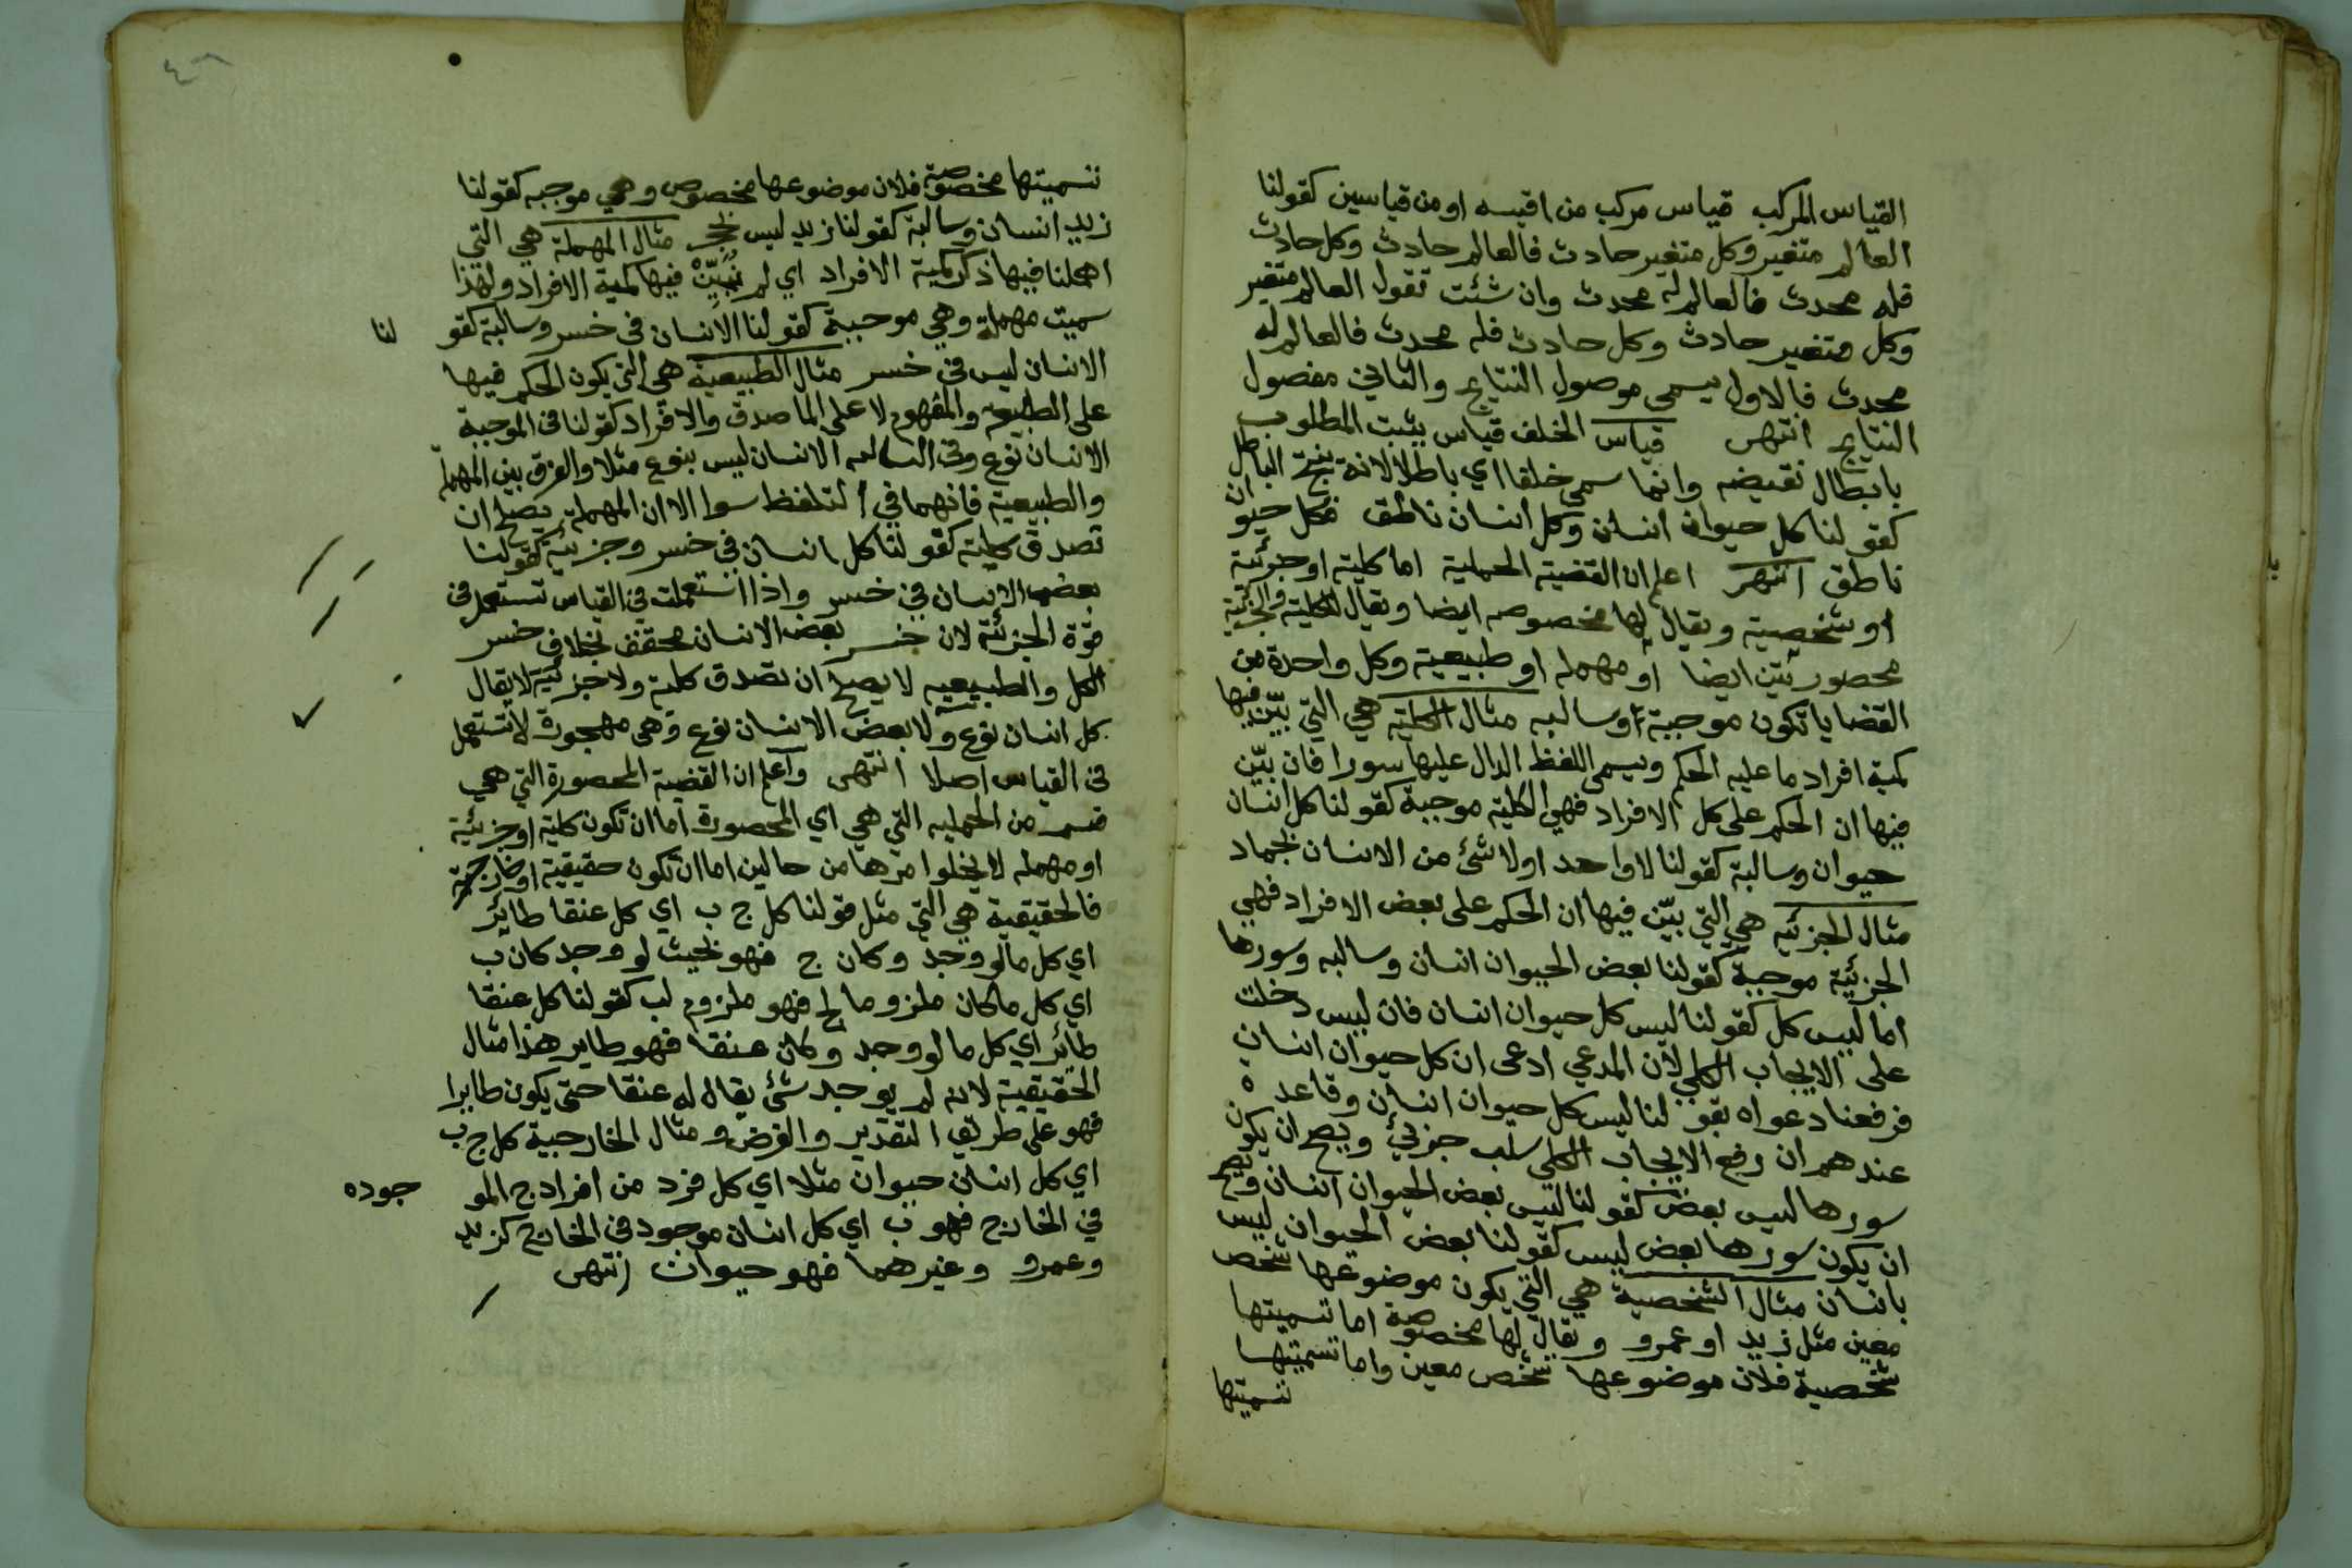 القياس المركب قياس مركب من اقيسه او من قياسين كقولنا
العالم متغير وكل متغير حادث فالعالم حادث وكل حادث
فله محدث فالعالم له محدث وان شئت تقول العالم متغير
وكل متغير حادث وكل حادث فله محدث فالعالم له
محدث فالاول يسمى موصول النتايج والثاني مفصول
النتايج انتهى قياس الخلف قياس يثبت المطلوب
بابطال نقيضه وانما سمى خلفا اي باطلا لانه ينتج الباطل
كقولنا كل حيوان انسان وكل انسان ناطق فكل حيوان
ناطق انتهى اعلم ان القضية الحملية اما كلية او جزئية
او شخصية ويقال لها مخصوصه ايضا ويقال للكلية والجزئية
محصورتين ايضا او مهمله او طبيعية وكل واحدة من
القضايا تكون موجبة او سالبه مثال الكلية هي التي بيّن فيها
كمية افراد ما عليه الحكم ويسمى اللفظ الدال عليها سورا فان بيّن
فيها ان الحكم على كل الافراد فهي الكلية موجبة كقولنا كل انسان
حيوان وسالبة كقولنا لا واحد او لا شئ من الانسان بجماد
مثال الجزئيه هي التي بيّن فيها ان الحكم على بعض الافراد فهي
الجزئية موجبة كقولنا بعض الحيوان انسان وسالبه وسورها
اما ليس كل كقولنا ليس كل حيوان انسان فان ليس دخلت
على الايجاب الكلي لان المدعي ادعى ان كل حيوان انسان
فرفعنا دعواه بقولنا ليس كل حيوان انسان وقاعدة
عندهم ان رفع الايجاب الكلي سلب جزئي ويصح ان يكون
سورها ليس بعض كقولنا ليس بعض الحيوان انسان ويصح
ان يكون سورها بعض ليس كقولنا بعض الحيوان ليس
بانسان مثال الشخصية هي التي يكون موضوعها شخص
معين مثل زيد او عمرو ويقال لها مخصوصة اما تسميتها
شخصية فلان موضوعها شخص معين واما تسميتها
تسميتها
تسميتها مخصوصة فلان موضوعها مخصوص وهي موجبه كقولنا
زيد انسان وسالبة كقولنا زيد ليس بحجر مثال المهملة هي التي
اهملنا فيها ذكر كمية الافراد اي لم نُبَيِّنْ فيها كمية الافراد ولهذا
سميت مهملة وهي موجبة كقولنا الانسان في خسر وسالبة كقولنا
الانسان ليس في خسر مثال الطبيعية هي التي يكون الحكم فيها
على الطبيعه والمفهوم لا على الماصدق والافراد كقولنا في الموجبة
الانسان نوع وفي السالبه الانسان ليس بنوع مثلا والفرق بين المهملة
والطبيعية فانهما في التلفظ سوا الا ان المهملة يصلح ان
تصدق كلية كقولنا كل انسان في خسر وجزئية كقولنا
بعض الانسان في خسر واذا استعملت في القياس تستعمل في
قوة الجزئية لان خسر بعض الانسان محقق بخلاف خسر
الكل والطبيعيه لا يصلح ان تصدق كلية ولا جزئية لا يقال
كل انسان نوع ولا بعض الانسان نوع وهي مهجورة لا تستعمل
في القياس اصلا انتهى واعلم ان القضية المحصورة التي هي
قسم من الحمليه التي هي اي المحصورة اما ان تكون كلية او جزئية
او مهمله لا يخلوا امرها من حالين اما ان تكون حقيقية او خارجية
فالحقيقية هي التي مثل قولنا كل ج ب اي كل عنقا طائر
اي كل ما لو وجد وكان ج فهو بحيث لو وجد كان ب
اي كل ما كان ملزوما لج فهو ملزوم لب كقولنا كل عنقا
طائر اي كل ما لو وجد وكان عنقا فهو طاير هذا مثال
الحقيقية لانه لم يوجد شئ يقال له عنقا حتى يكون طايرا
فهو على طريق التقدير والفرض ومثال الخارجية كل ج ب
اي كل انسان حيوان مثلا اي كل فرد من افراد ج الموجوده
في الخارج فهو ب اي كل انسان موجود في الخارج كزيد
وعمرو وغيرهما فهو حيوان انتهى